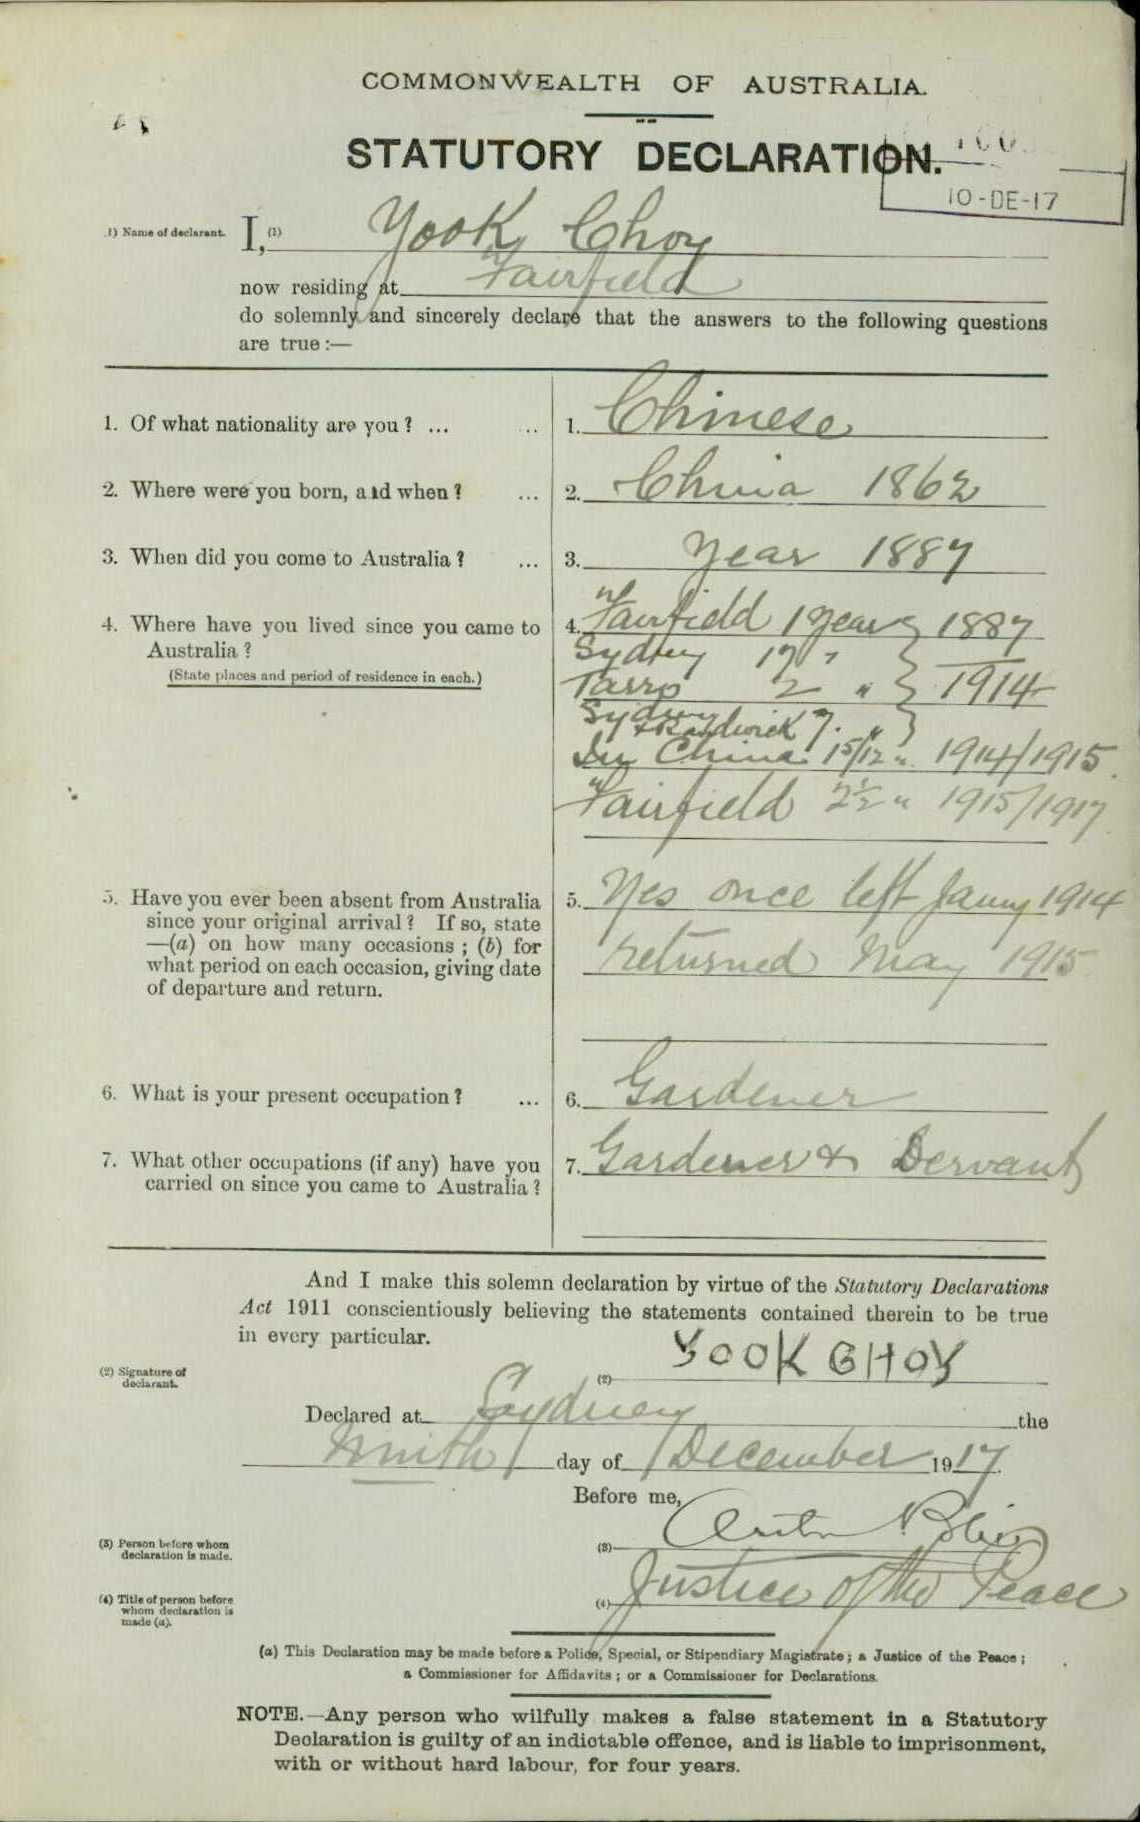 COMMONWEALTH OF AUSTRALIA.
STATUTORY DECLARATION.
10-DE-17
(1) Name of declarant. I, (1) Yook Choy
now residing at Fairfield
do solemnly and sincerely declare that the answers to the following questions
are true:—
1. Of what nationality are you? ... ... 1. Chinese
2. Where were you born, and when? ... 2. China 1862
3. When did you come to Australia? ... 3. Year 1887
4. Where have you lived since you came to 4. Fairfield 1 Year 1887
Australia? Sydney 17 "
(State places and period of residence in each.) Tarro 2 " 1914
Sydney
& Randwick 7. "
In China 15/12 " 1914/1915
Fairfield 2½ " 1915/1917
5. Have you ever been absent from Australia 5. Yes once left Janny 1914
since your original arrival? If so, state
—(a) on how many occasions; (b) for returned May 1915
what period on each occasion, giving date
of departure and return.
6. What is your present occupation? ... 6. Gardener
7. What other occupations (if any) have you 7. Gardener & Servant
carried on since you came to Australia?
And I make this solemn declaration by virtue of the Statutory Declarations
Act 1911 conscientiously believing the statements contained therein to be true
in every particular.
(2) Signature of declarant. (2) YOOK CHOY
Declared at Sydney the
Ninth day of December 1917.
Before me,
(3) Person before whom declaration is made. (3)
(4) Title of person before whom declaration is made (a). (4) Justice of the Peace
(a) This Declaration may be made before a Police, Special, or Stipendiary Magistrate; a Justice of the Peace;
a Commissioner for Affidavits; or a Commissioner for Declarations.
NOTE.—Any person who wilfully makes a false statement in a Statutory
Declaration is guilty of an indictable offence, and is liable to imprisonment,
with or without hard labour, for four years.